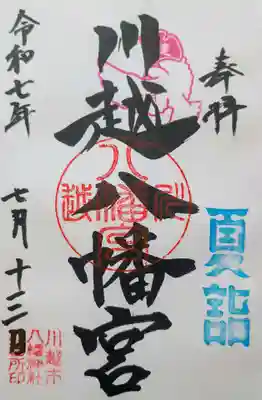 奉拝
夏詣
川越八幡宮
川越八幡宮
令和七年
七月十三日
川越市
八幡神社
社務所印